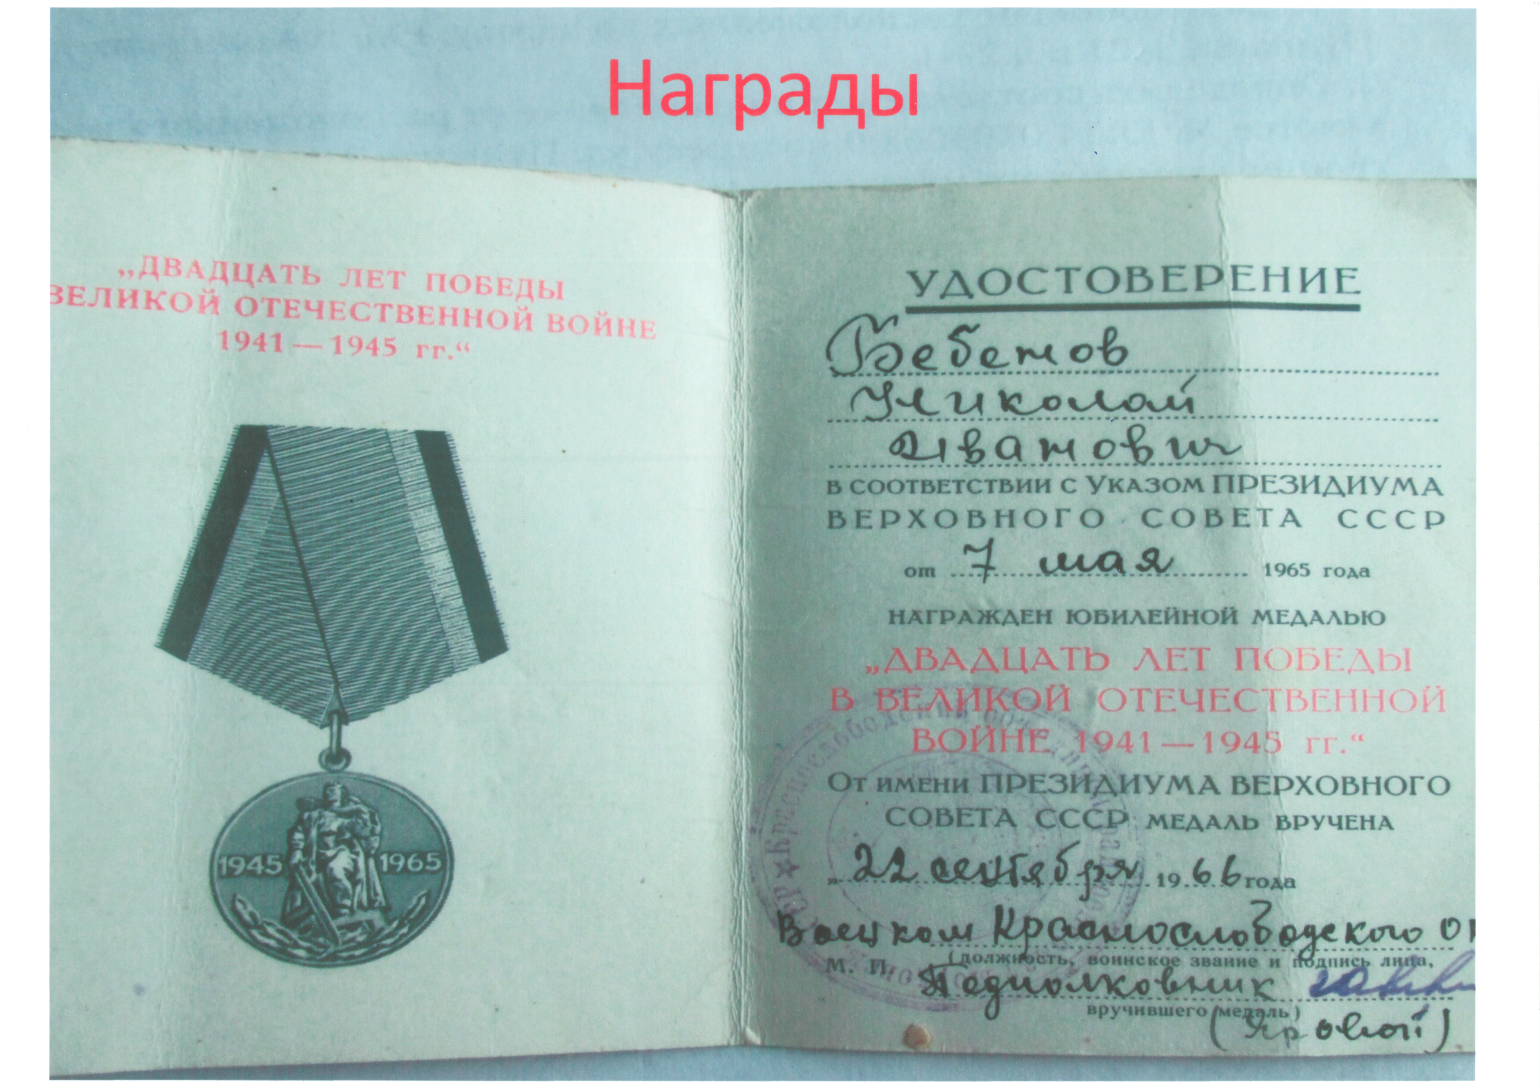 Награды
„ДВАДЦАТЬ ЛЕТ ПОБЕДЫ
ВЕЛИКОЙ ОТЕЧЕСТВЕННОЙ ВОЙНЕ
1941—1945 гг.“
1945 1965
УДОСТОВЕРЕНИЕ
Николай
Иванович
в соответствии с Указом ПРЕЗИДИУМА
ВЕРХОВНОГО СОВЕТА СССР
от 7 мая 1965 года
НАГРАЖДЕН ЮБИЛЕЙНОЙ МЕДАЛЬЮ
„ДВАДЦАТЬ ЛЕТ ПОБЕДЫ
В ВЕЛИКОЙ ОТЕЧЕСТВЕННОЙ
ВОЙНЕ 1941—1945 гг.“
От имени ПРЕЗИДИУМА ВЕРХОВНОГО
СОВЕТА СССР МЕДАЛЬ ВРУЧЕНА
„22 сентября 1966 года
Военком Краснослободского
М. П. (должность, воинское звание и подпись лица,
Подполковник
вручившего медаль)
(Яровой)